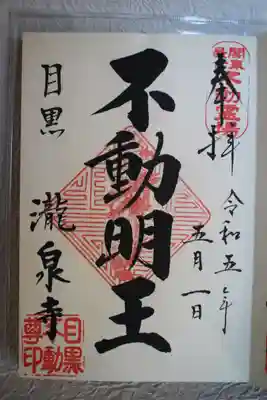 関東最
不動霊場
奉拝
令和五年
五月一日
不動明王
目黒
瀧泉寺
目黒
不動
尊印